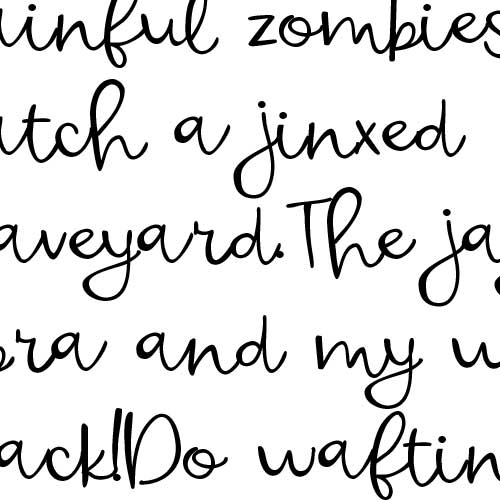 ainful zombies
atch a jinxed
aveyard.The ja
bra and my w
ack!Do waftin